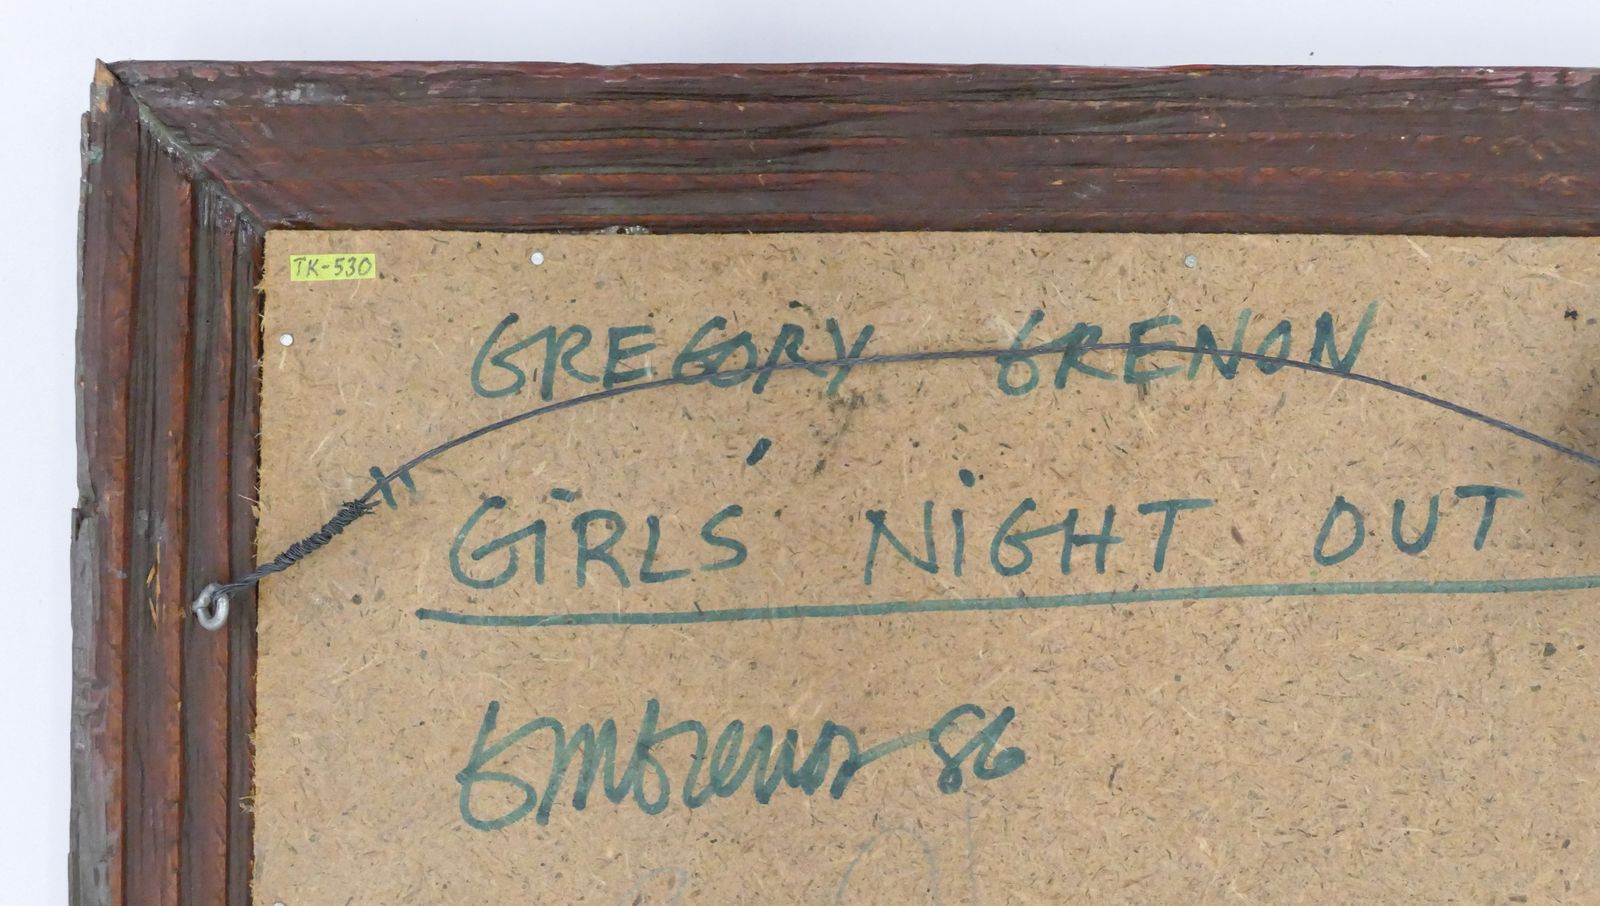 TK-530
GREGORY GRENON
"GIRLS' NIGHT OUT
GMGrenon 86